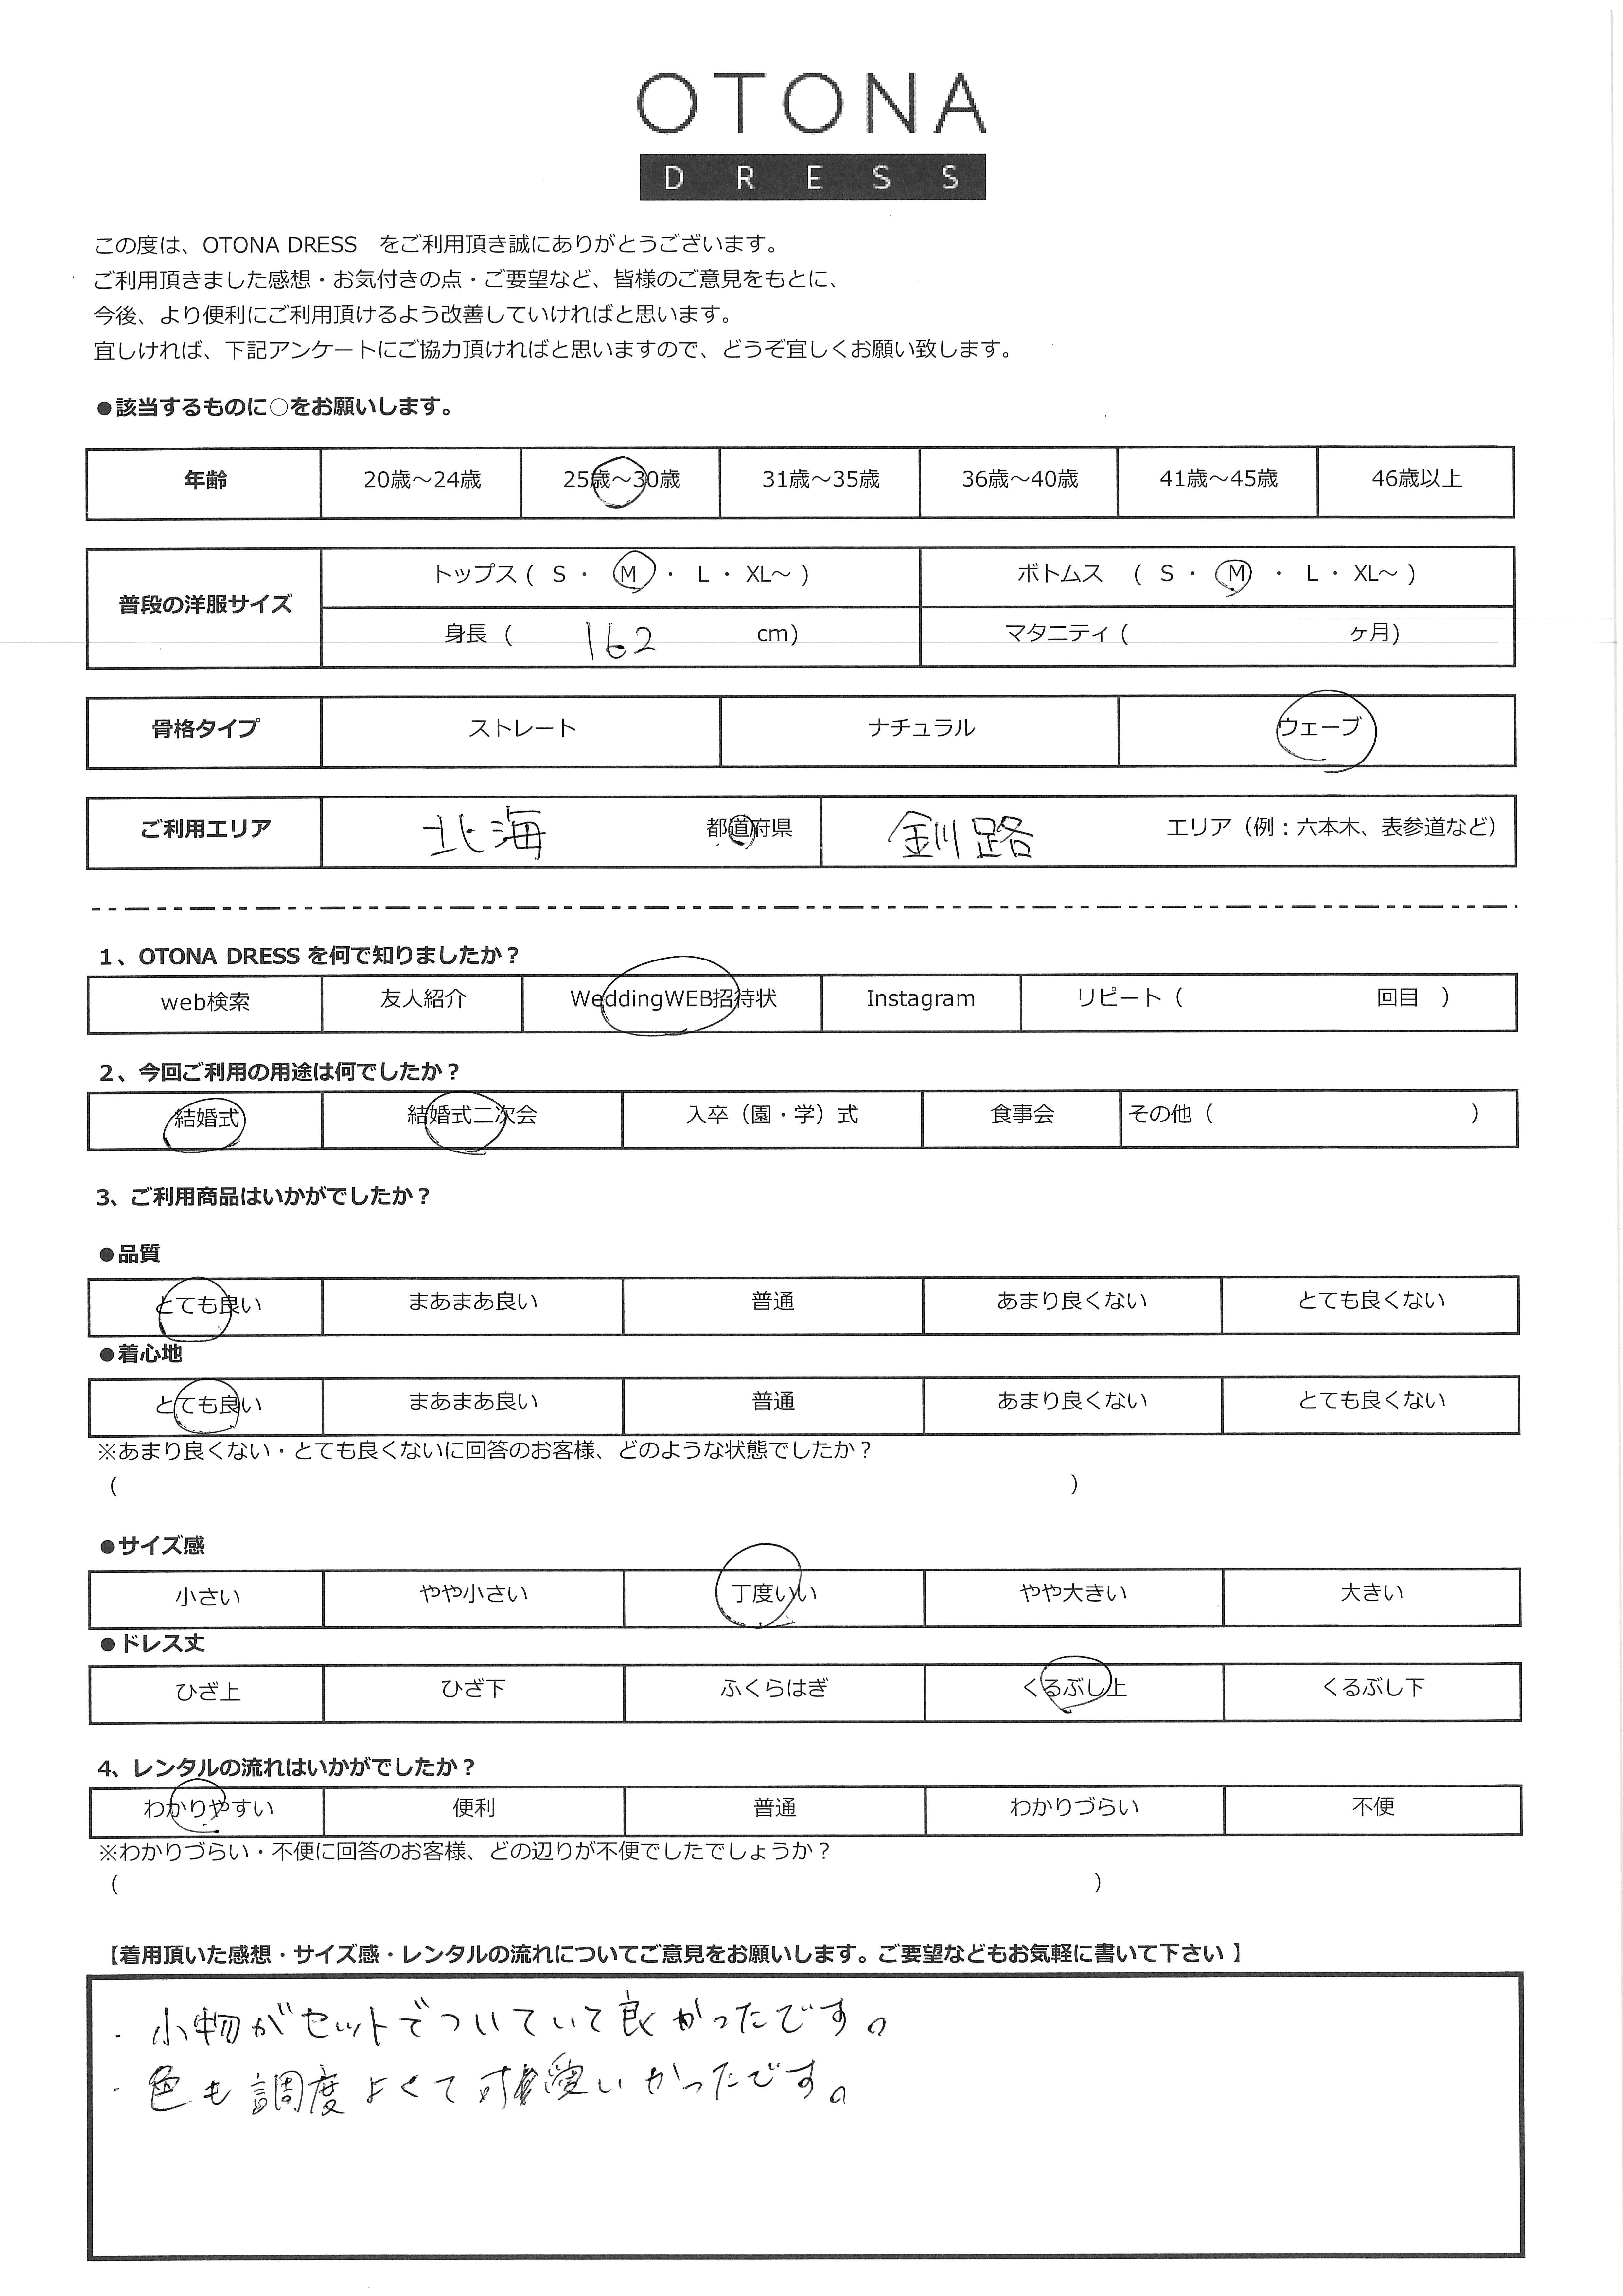 OTONA
DRESS
この度は、OTONA DRESS をご利用頂き誠にありがとうございます。
ご利用頂きました感想・お気付きの点・ご要望など、皆様のご意見をもとに、
今後、より便利にご利用頂けるよう改善していければと思います。
宜しければ、下記アンケートにご協力頂ければと思いますので、どうぞ宜しくお願い致します。
●該当するものに○をお願いします。
年齢 20歳～24歳 25歳～30歳 31歳～35歳 36歳～40歳 41歳～45歳 46歳以上
普段の洋服サイズ
トップス ( S ・ M ・ L ・ XL～ ) ボトムス ( S ・ M ・ L ・ XL～ )
身長 ( 162 cm) マタニティ ( ヶ月)
骨格タイプ ストレート ナチュラル ウェーブ
ご利用エリア 北海 都道府県 釧路 エリア（例：六本木、表参道など）
1、OTONA DRESS を何で知りましたか？
web検索 友人紹介 WeddingWEB招待状 Instagram リピート（ 回目 ）
2、今回ご利用の用途は何でしたか？
結婚式 結婚式二次会 入卒（園・学）式 食事会 その他（ ）
3、ご利用商品はいかがでしたか？
●品質
とても良い まあまあ良い 普通 あまり良くない とても良くない
●着心地
とても良い まあまあ良い 普通 あまり良くない とても良くない
※あまり良くない・とても良くないに回答のお客様、どのような状態でしたか？
（ ）
●サイズ感
小さい やや小さい 丁度いい やや大きい 大きい
●ドレス丈
ひざ上 ひざ下 ふくらはぎ くるぶし上 くるぶし下
4、レンタルの流れはいかがでしたか？
わかりやすい 便利 普通 わかりづらい 不便
※わかりづらい・不便に回答のお客様、どの辺りが不便でしたでしょうか？
（ ）
【着用頂いた感想・サイズ感・レンタルの流れについてご意見をお願いします。ご要望などもお気軽に書いて下さい 】
・小物がセットでついていて良かったです。
・色も調度よくて可愛いかったです。